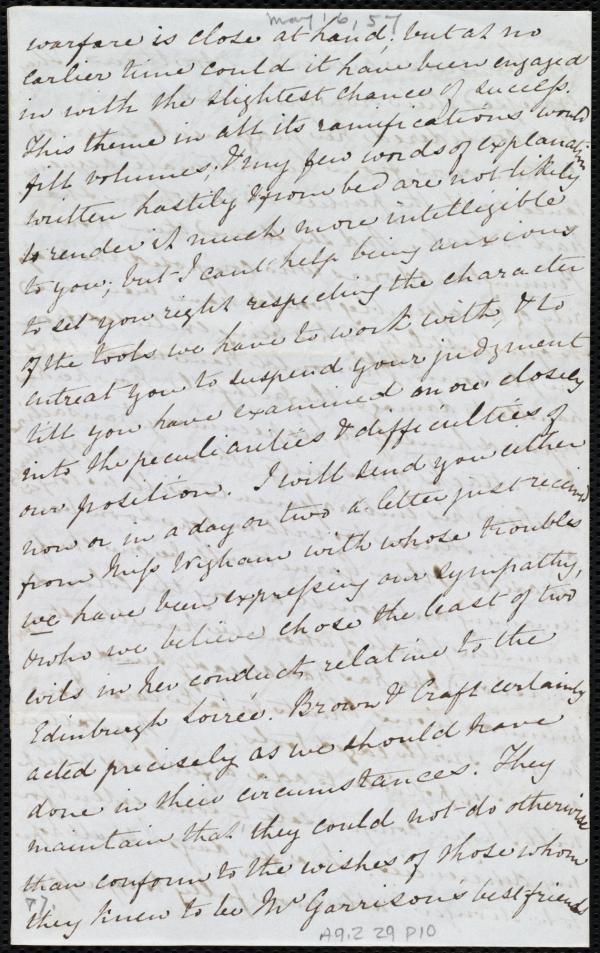 May, 6, 57
warfare is close at hand; but at no
earlier time could it have been engaged
in with the slightest chance of success.
This theme in all its ramifications would
fill volumes, & my few words of explanation
written hastily & from bed are not likely
to render it much more intelligible
to you; but I can't help being anxious
to set you right respecting the character
of the tools we have to work with, & to
entreat you to suspend your judgment
till you have examined more closely
into the peculiarities & difficulties of
our position. I will send you either
now or in a day or two a letter just received
from Miss Wigham with whose troubles
we have been expressing our sympathy,
& who we believe chose the least of two
evils in her conduct relative to the
Edinburgh Soirée. Brown & Craft certainly
acted precisely as we should have
done in their circumstances. They
maintain that they could not do otherwise
than conform to the wishes of those whom
they knew to be Mr Garrison's best friends
A.9.2 29 P10